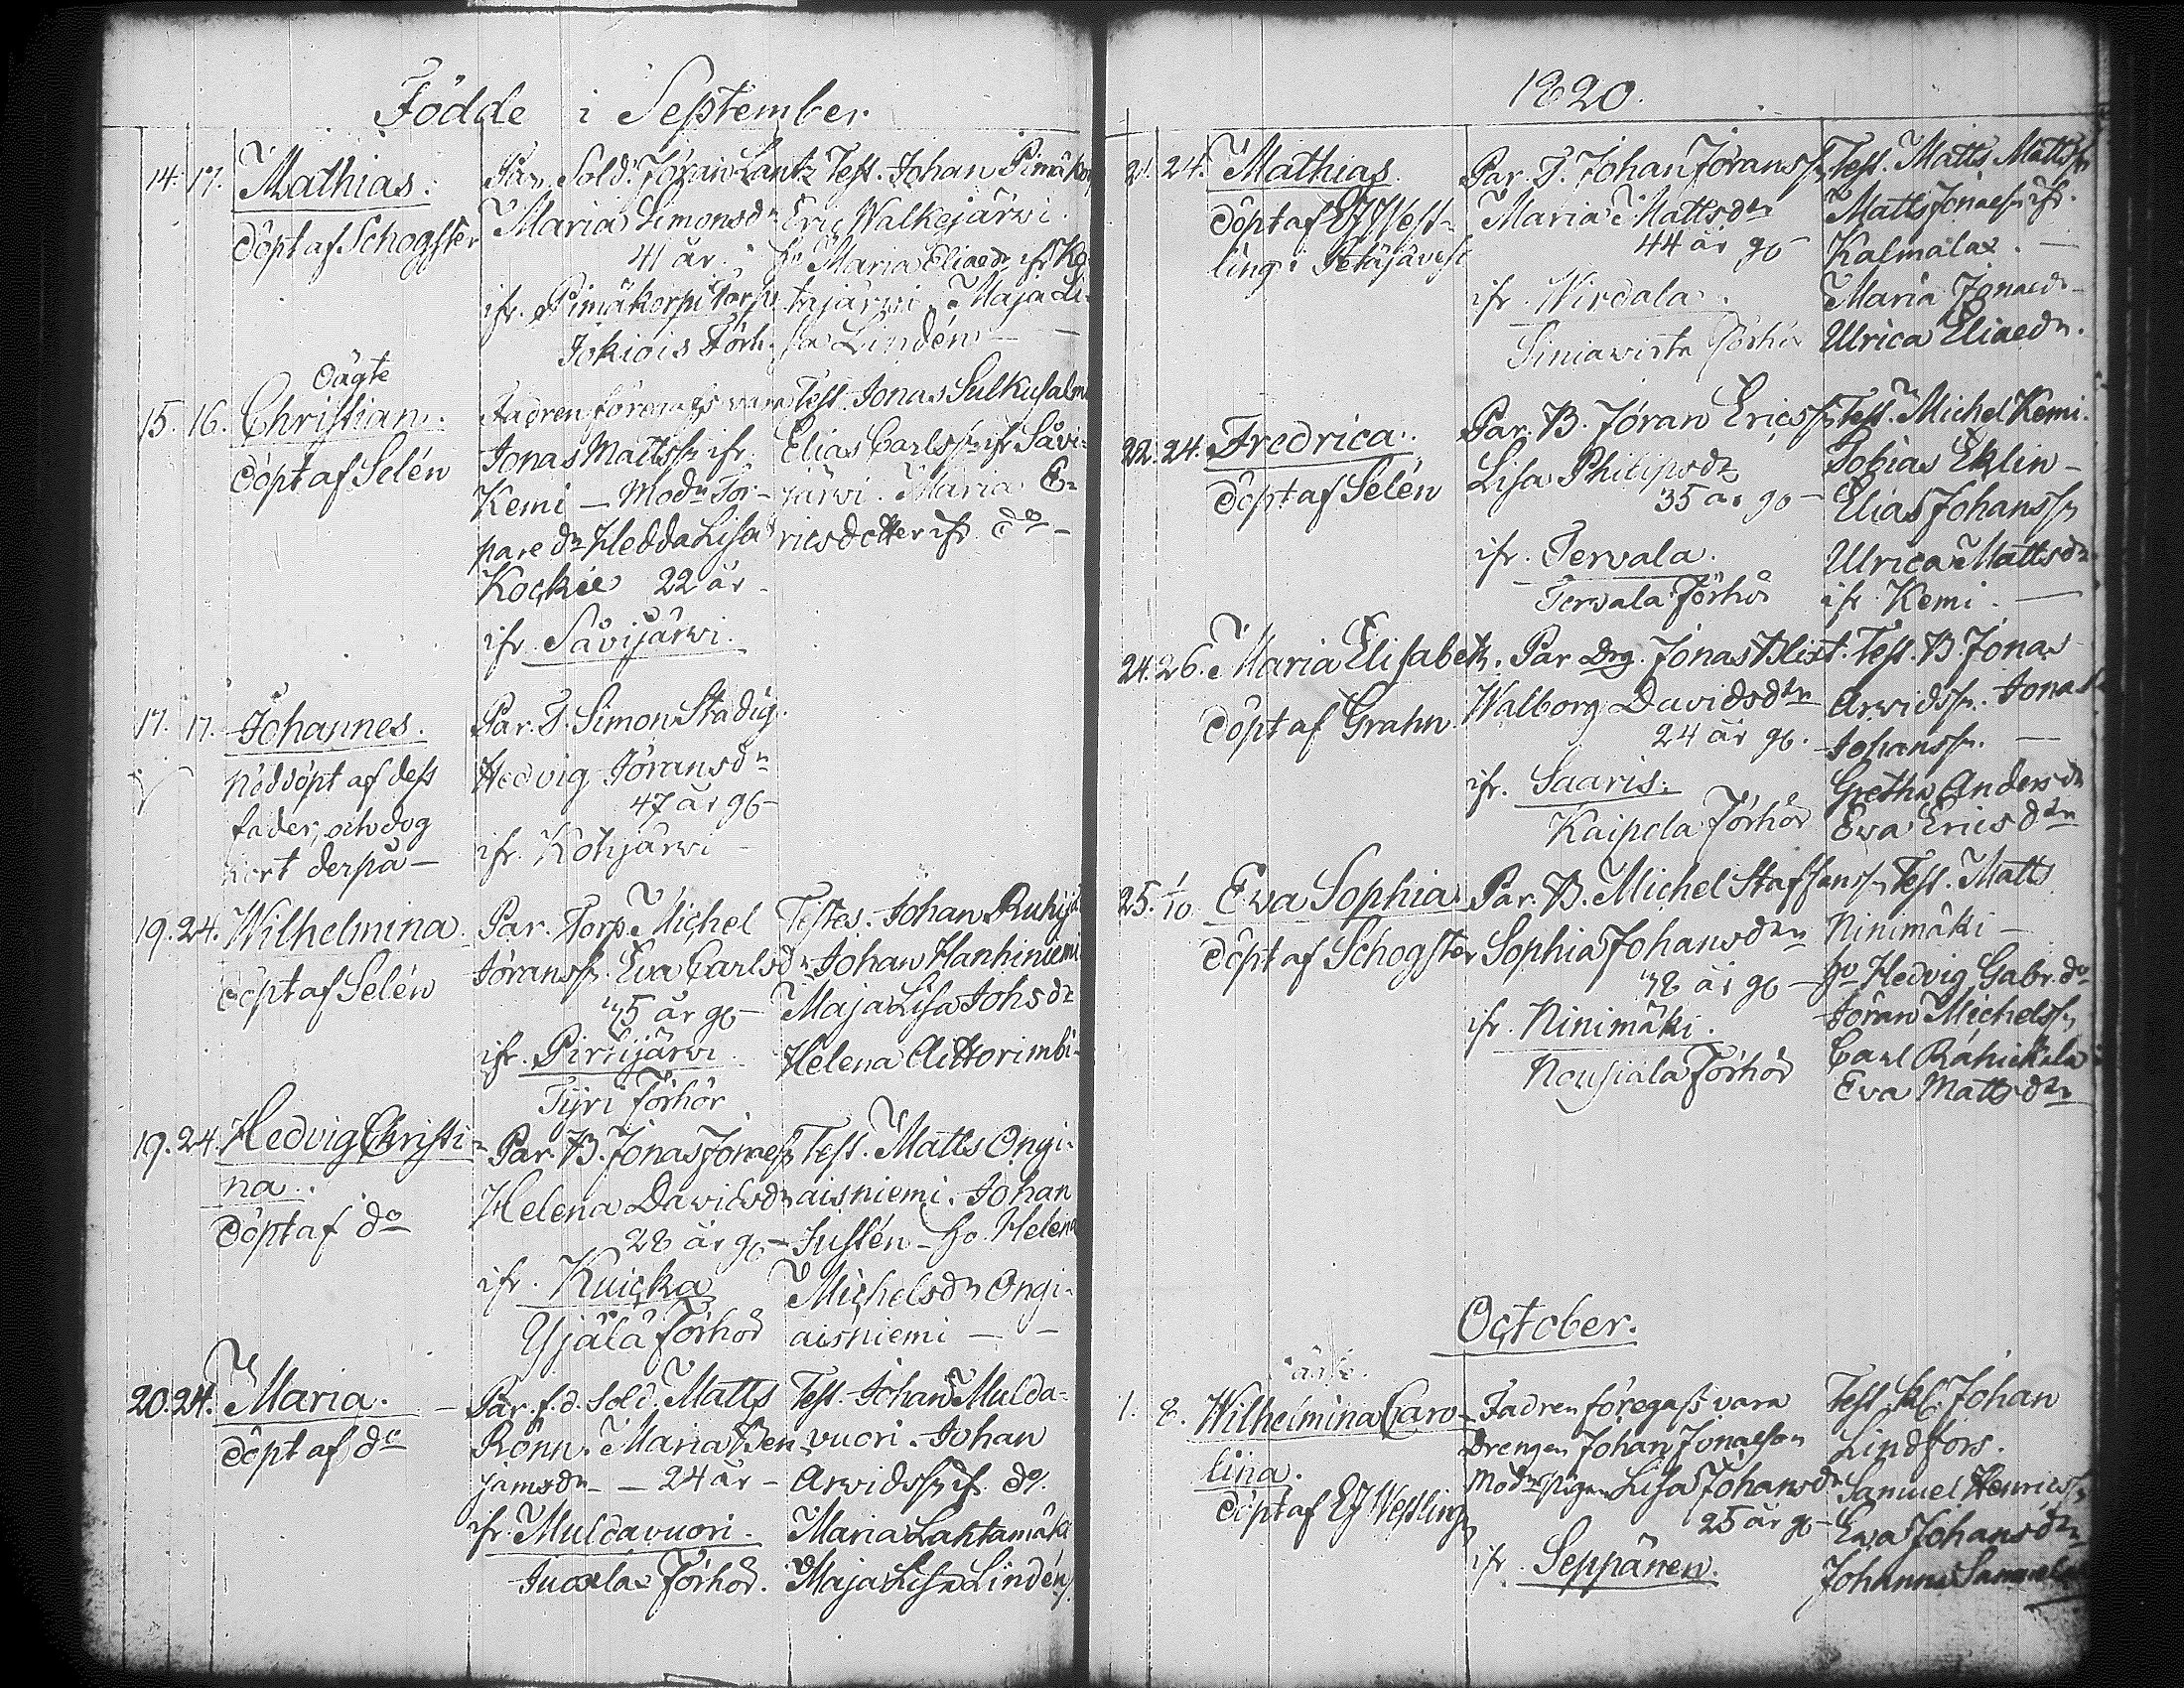 Födde i September
14. 17. Mathias.
döpt af Schogster
Par. Sold. Jöran Lantz
Maria Simonsdr
41 år.
ifr. Pimäkorpi Torp
Jokiois Förh.
Test. Johan Pimäkor
Eric Walkejärwi.
hu Maria Eliaedr ifr Ke
tajärwi. Maja Li-
sa Lindén —
Oägte
15. 16. Christian.
döpt af Selén
Fadren föregafs vara
Jonas Mattss. ifr.
Kemi — Modn Tor-
pare dn Hedda Lisa
Kockie 22 år.
ifr. Såvijärwi.
Test. Jonas Sulkusalm
Elias Carlss. ifr Såvi-
järwi. Maria E-
ricsdotter ifr do —
17. 17. Johannes.
Nöddöpt af dess
fader, och dog
kort derpå —
Par. T. Simon Stadig.
Hedvig Jöransdr
47 år g6 —
ifr. Kotijärwi —
19. 24. Wilhelmina.
döpt af Selén
Par. Torp. Michel
Jöranss. Eva Carlsdr
45 år g6 —
ifr. Pirttijärwi.
Tyri Förhör
Testes. Johan Ruhijä
Johan Hanhiniemi
Maja Lisa Johsdr
Helena Aittorimbi-
19. 24. Hedvig Christi-
na.
döpt af do
Par. B. Jonas Jonaess.
Helena Davidsdr
28 år g6 —
ifr. Kuicka
Yjälä Förhör
Test. Matts Ongi-
aisniemi. Johan
Justén — hu Helena
Michelsdr Ongi-
aisniemi — —
20. 24. Maria.
döpt af do
Par. f.d. Sold. Matts
Rönn. Maria Ben-
jamsdr — 24 år —
ifr. Muldavuori.
Juoxla Förhör.
Test. Johan Mulda-
vuori. Johan
Arwidss. if. do.
Maria Lahtamäki
Maja Lisa Lindén
1820.
21. 24. Mathias.
döpt af EJ West-
ling i Petäjävesi
Par. T. Johan Jöranss.
Maria Mattsdr
44 år g6
ifr. Wirdala.
Siniawirta Förhör
Test. Matts Mattss.
Matts Jonaess. ifr.
Kalmala. —
Maria Jonaedr —
Ulrica Eliaedr.
22. 24. Fredrica.
döpt af Selén
Par. B. Jöran Ericss.
Lisa Philipsdr
35 år g6 —
ifr. Tervala.
Tervala Förhör
Test. Michel Kemi.
Tobias Eklin —
Elias Johanss.
Ulrica Mattsdr
ifr Kemi. —
24. 26. Maria Elisabeth.
döpt af Grahn
Par. Drg. Jonas Blixt.
Walborg Davidsdr
24 år g6.
ifr. Saaris.
Kaipola Förhör
Test. B. Jonas
Arvidss. Jonas
Johanss. —
Gretha Andersdr
Eva Ericsdr
25. 1/10 Eva Sophia
döpt af Schogster
Par. B. Michel Staffanss.
Sophia Johansdr
38 år g6 —
ifr. Ninimäki.
Nousiala Förhör
Test. Matts
Ninimäki —
hu Hedvig Gabr.dr
Jöran Michelss.
Carl Rahickala
Eva Mattsdr
October.
1. 8. Wilhelmina Caro-
lina.
döpt af EJ Westling
Fadren föregafs vara
Drengen Johan Jonaeson
Modn Pigan Lisa Johansdr
25 år g6 —
ifr. Seppänen.
Test. Johan
Lindfors.
Samuel Henricss.
Eva Johansdr
Johanna Samuels